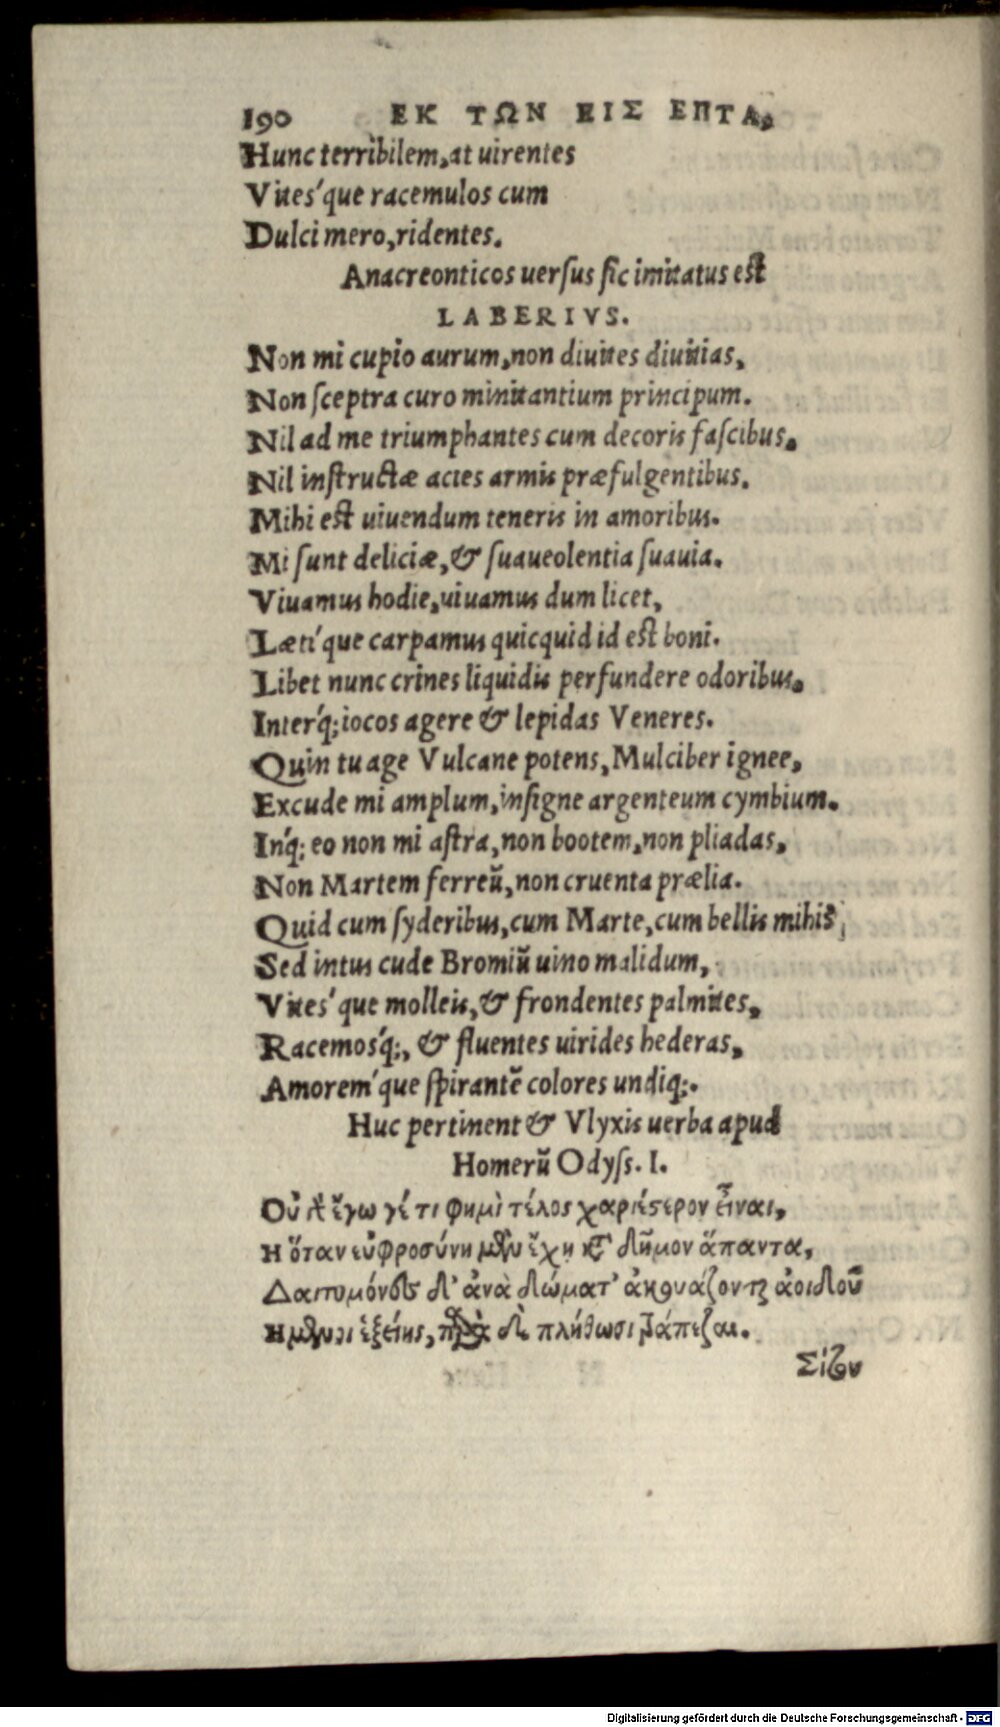 190 ΕΚ ΤΩΝ ΕΙΣ ΕΠΤΑ,
Hunc terribilem, at uirentes
Vites'que racemulos cum
Dulci mero, ridentes.
Anacreonticos uersus sic imitatus est
LABERIVS.
Non mi cupio aurum, non diuites diuitias,
Non sceptra curo minitantium principum.
Nil ad me triumphantes cum decoris fascibus.
Nil instructæ acies armis præfulgentibus.
Mihi est uiuendum teneris in amoribus.
Mi sunt deliciæ, & suaueolentia suauia.
Viuamus hodie, uiuamus dum licet,
Læti'que carpamus quicquid id est boni.
Libet nunc crines liquidis perfundere odoribus.
Inter'q; iocos agere & lepidas Veneres.
Quin tu age Vulcane potens, Mulciber ignee,
Excude mi amplum, insigne argenteum cymbium.
In'q; eo non mi astra, non bootem, non pliadas,
Non Martem ferreũ, non cruenta prælia.
Quid cum syderibus, cum Marte, cum bellis mihi?
Sed intus cude Bromiũ uino malidum,
Vites'que molleis, & frondentes palmites,
Racemos'q;, & fluentes uirides hederas,
Amorem'que spirantẽ colores undiq;.
Huc pertinent & Vlyxis uerba apud
Homerũ Odyss. I.
Οὐ δ' ἔγω γέ τι φημὶ τέλος χαριέστερον εἶναι,
Η ὅταν εὐφροσύνη μὲν ἔχῃ κατὰ δῆμον ἅπαντα,
Δαιτυμόνες δ' ἀνὰ δώματ' ἀκουάζονται ἀοιδοῦ
Ημενοι ἑξείης, παρὰ δὲ πλήθωσι τράπεζαι.
Σίτου
Digitalisierung gefördert durch die Deutsche Forschungsgemeinschaft - DFG